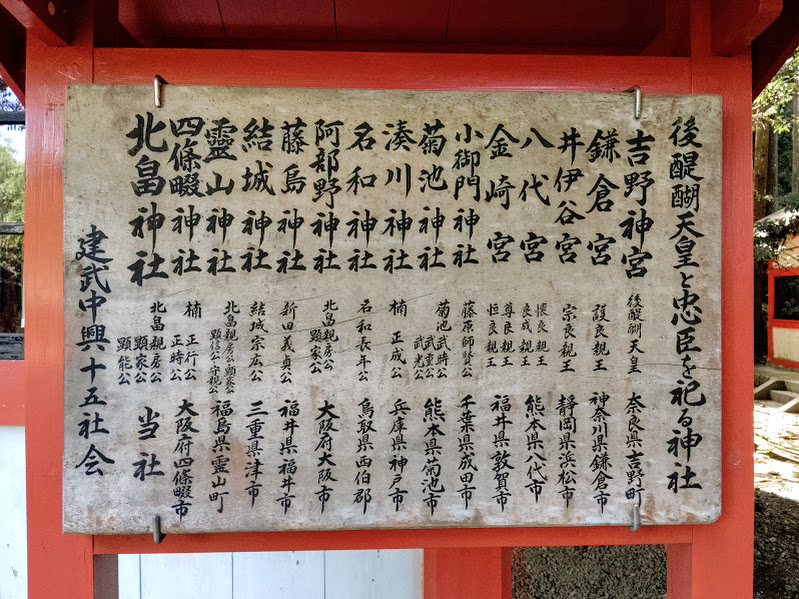 後醍醐天皇と忠臣を祀る神社
吉野神宮 後醍醐天皇 奈良県吉野町
鎌倉宮 護良親王 神奈川県鎌倉市
井伊谷宮 宗良親王 静岡県浜松市
八代宮 懐良親王 良成親王 熊本県八代市
金崎宮 尊良親王 恒良親王 福井県敦賀市
小御門神社 藤原師賢公 千葉県成田市
菊池神社 菊池武時公 武重公 武光公 熊本県菊池市
湊川神社 楠正成公 兵庫県神戸市
名和神社 名和長年公 鳥取県西伯郡
阿部野神社 北畠親房公 顕家公 大阪府大阪市
藤島神社 新田義貞公 福井県福井市
結城神社 結城宗広公 三重県津市
靈山神社 北畠親房公 顕家公 顕信公 守親公 福島県霊山町
四條畷神社 楠正行公 正時公 大阪府四條畷市
北畠神社 北畠親房公 顕家公 顕能公 当社
建武中興十五社会